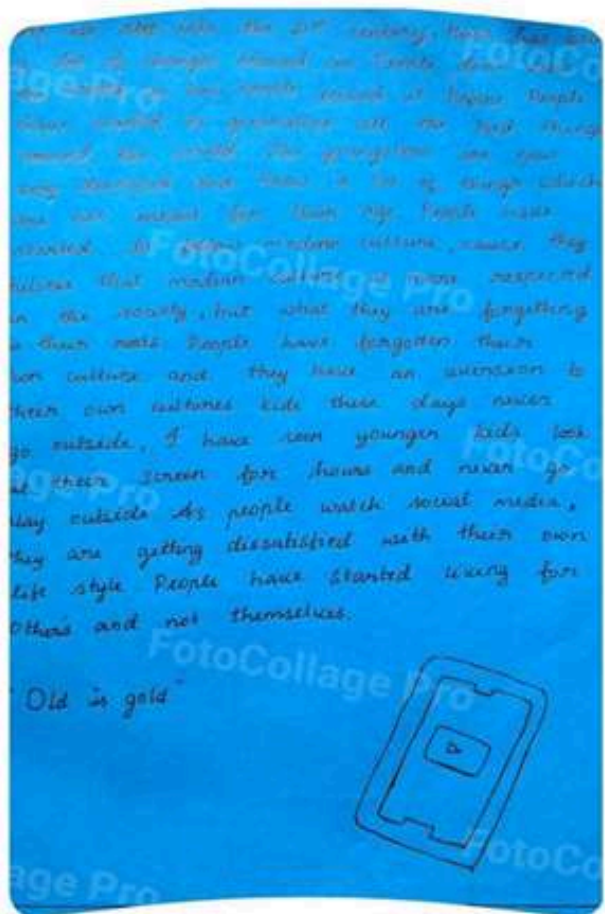 we step into the 21st century, there has been
a lot of changes around us. People
people looked at before. People
have started to generalise all the bad things
around the world. The youngsters are now
very and there is lot of things which
are not meant for their age. People have
started to follow modern culture, cause they
believe that modern culture is more respected
in the society, but what they are forgetting
is their roots. People have forgotten their
own culture and they have an aversion to
their own cultures kids these days never
go outside, I have seen younger kids look
at their screen for hours and never go
play outside As people watch social media,
they are getting dissatisfied with their own
life style People have started living for
Others and not themselves.
"Old is gold"
FotoCollage Pro